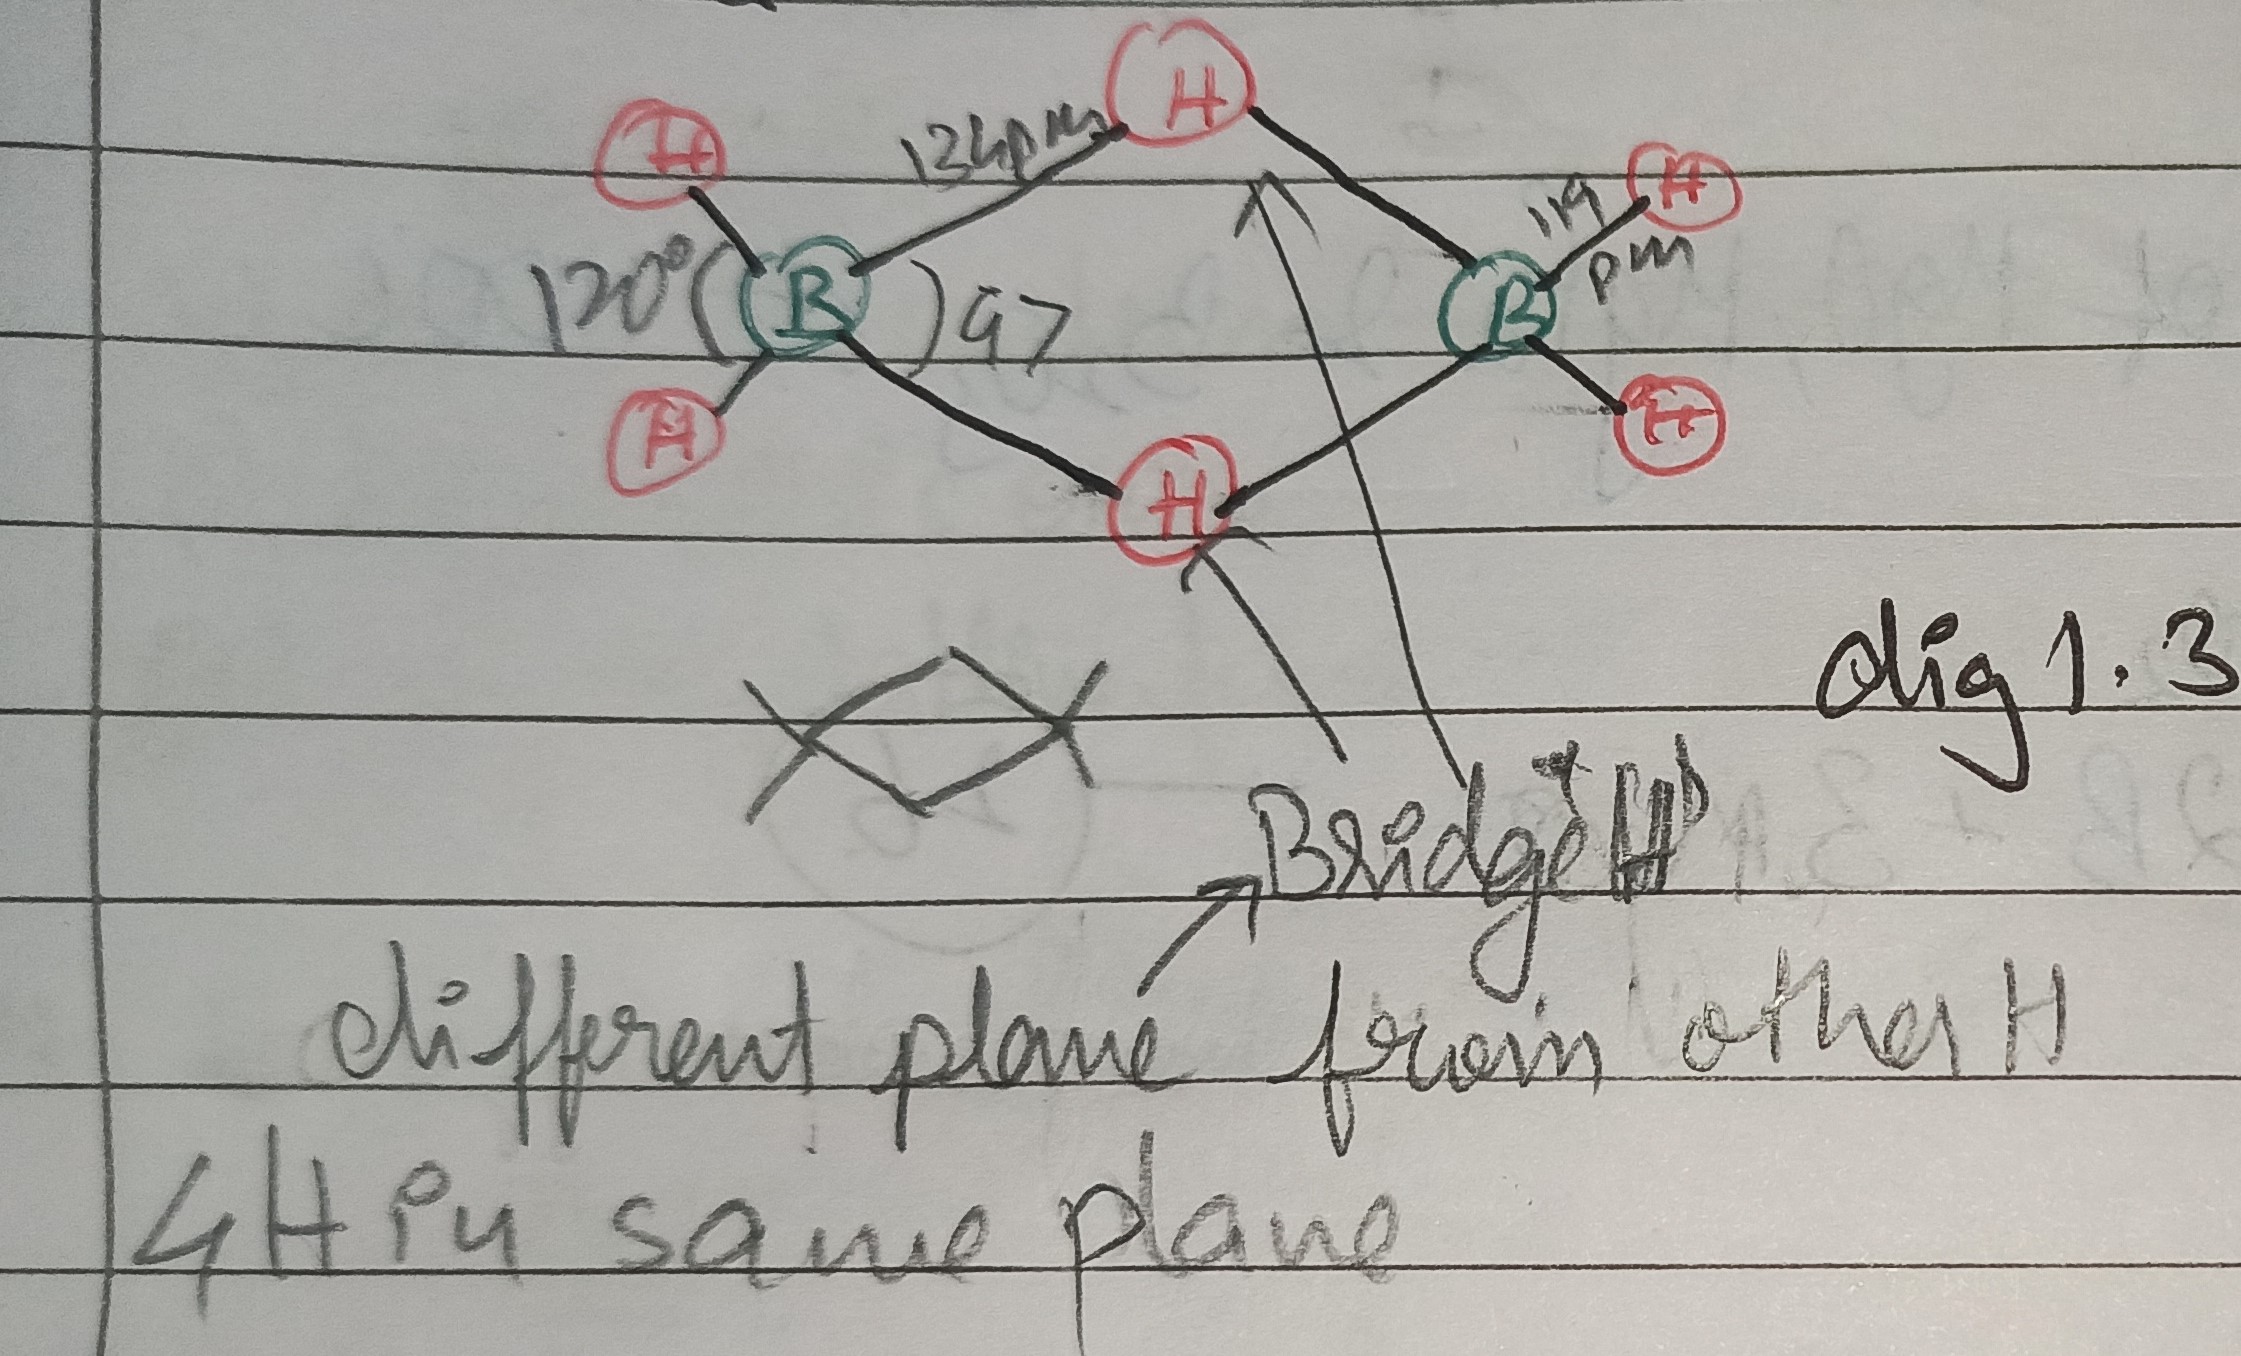 H
H 134pm H
119
120° ( B ) 97 B pm
H H
H
dig 1.3
Bridge H
different plane from other H
4H in same plane